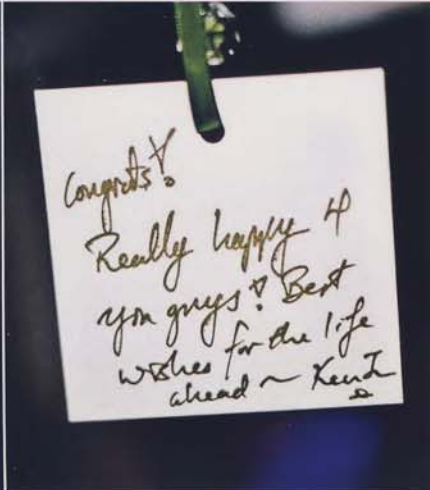 Congrats!
Really happy 4
you guys! Best
wishes for the life
ahead ~